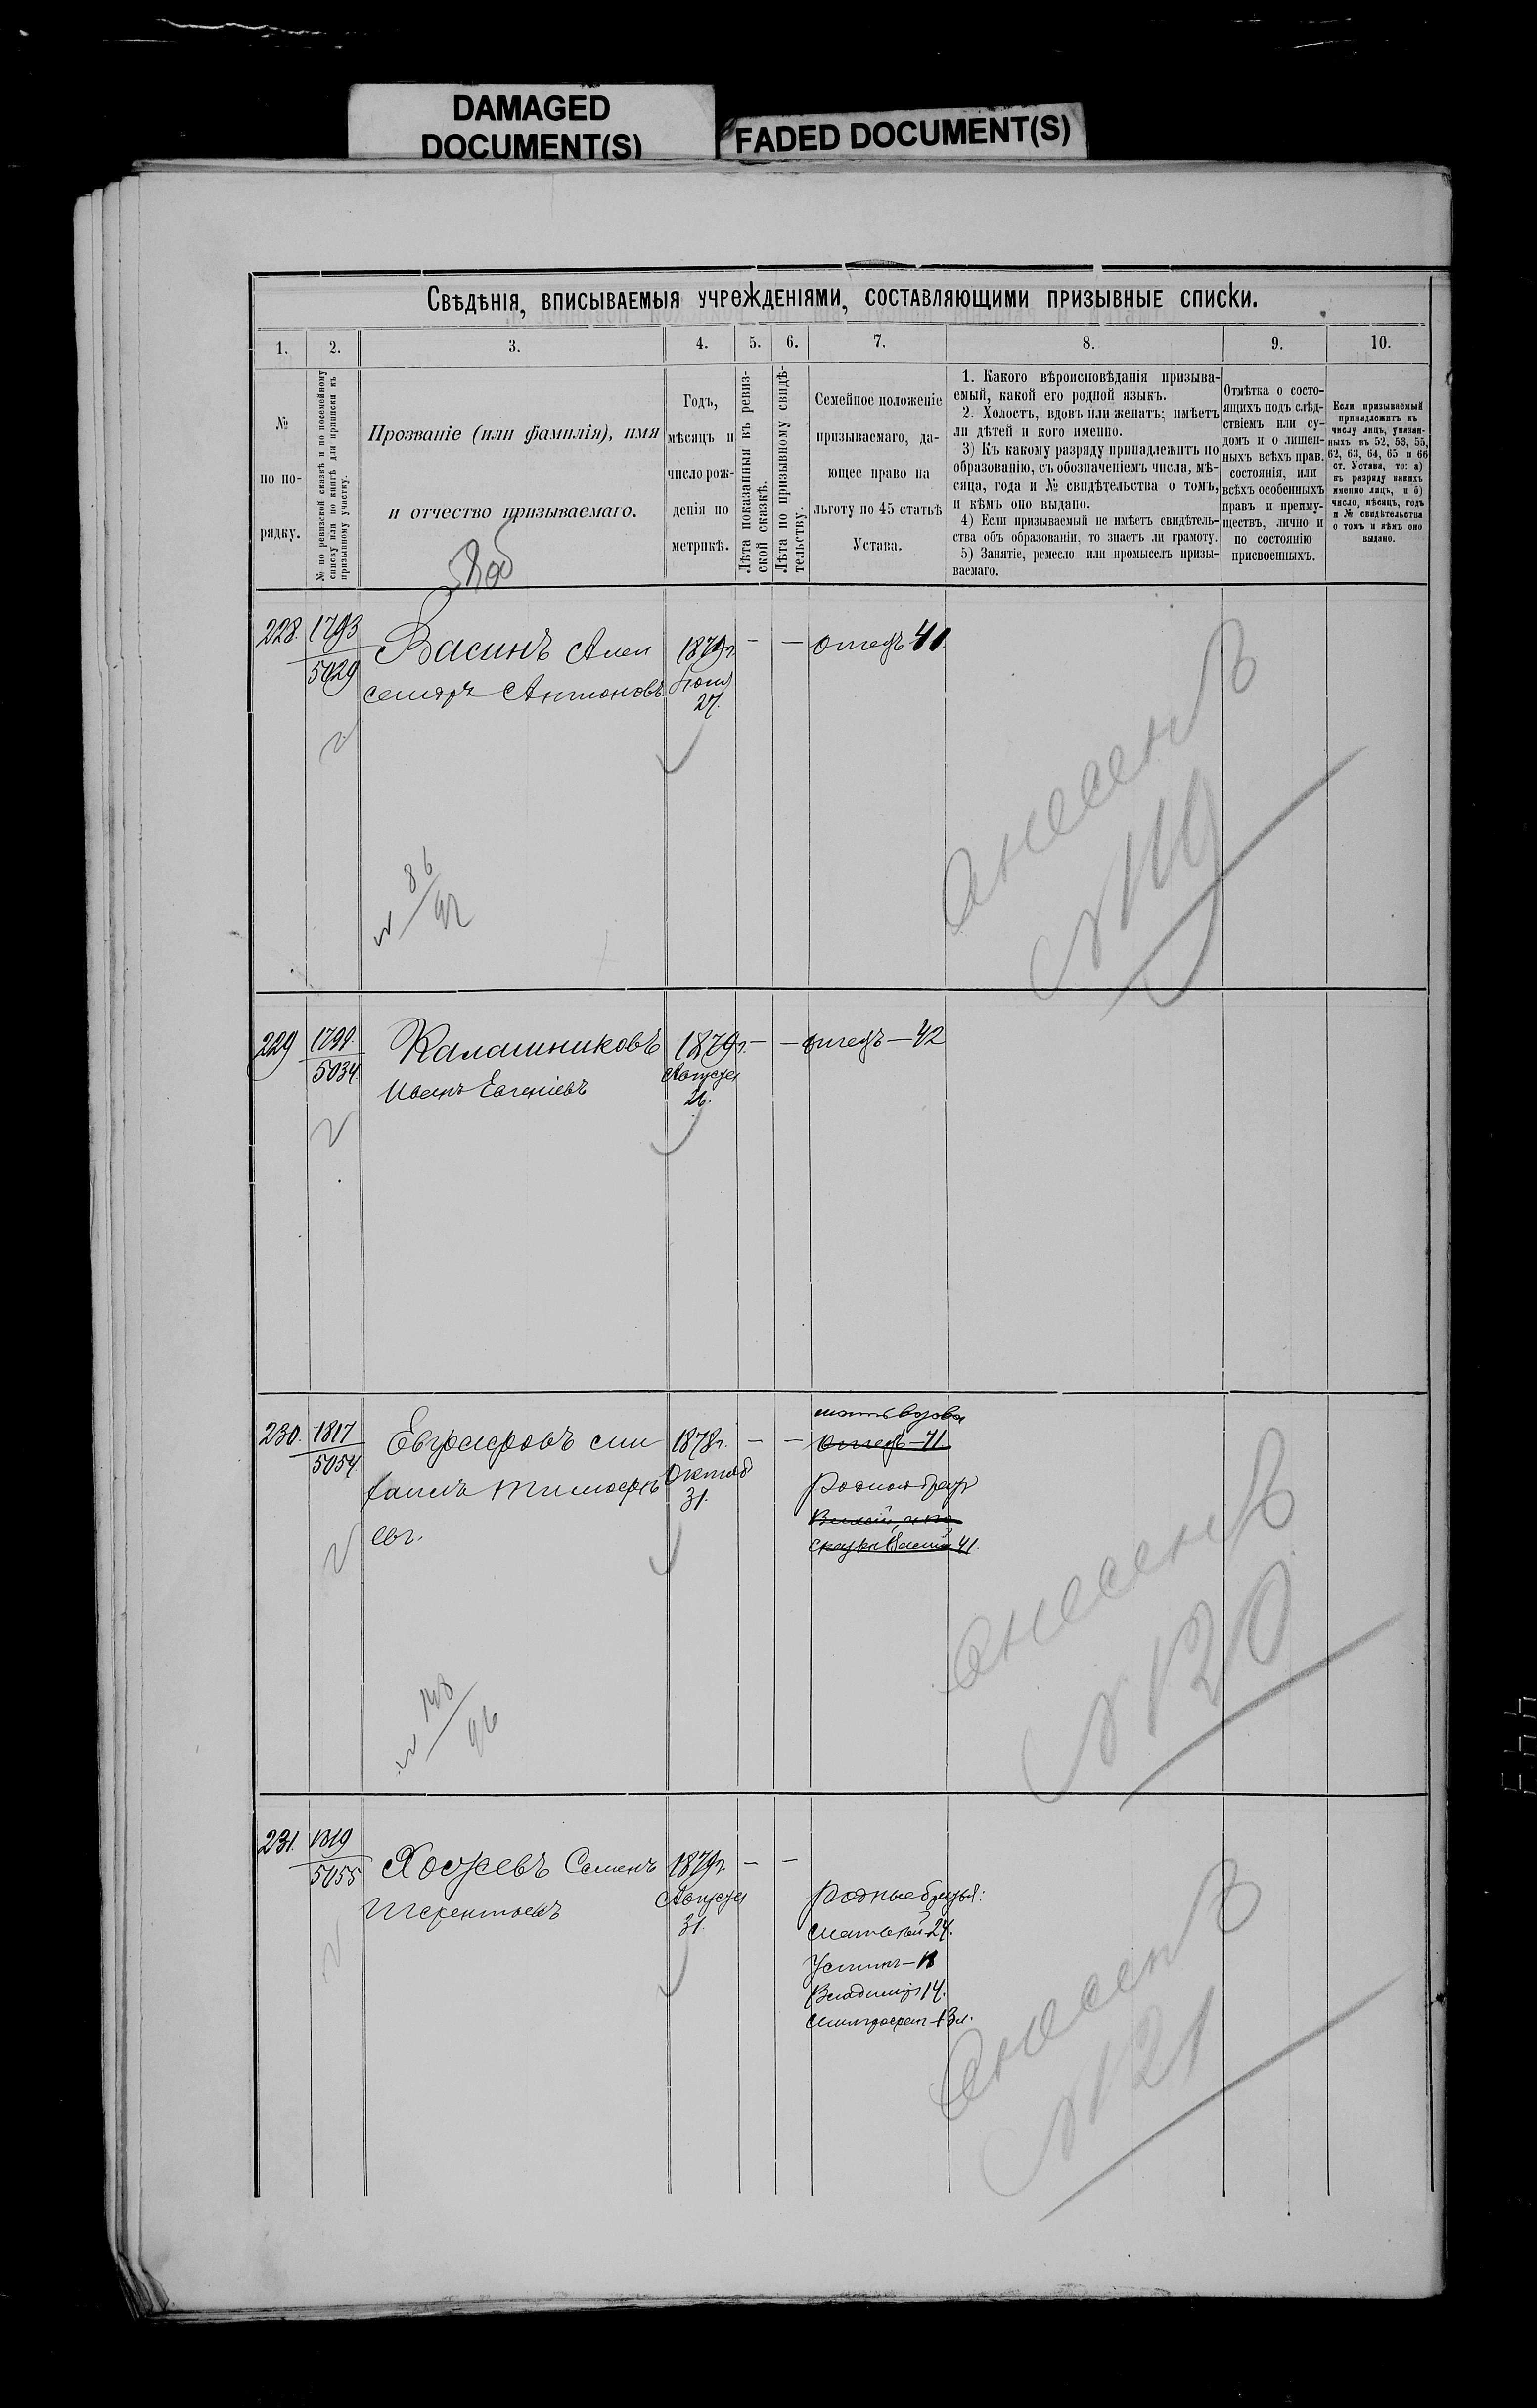 DAMAGED
DOCUMENT(S)
FADED DOCUMENT(S)
Свѣдѣнія, вписываемыя учрежденіями, составляющими призывные списки.
1. 2. 3. 4. 5. 6. 7. 8. 9. 10.
№
по по-
рядку.
№ по ревизской сказкѣ и по посемейному
списку или по книгѣ для приписки къ
призывному участку.
Прозваніе (или фамилія), имя
и отчество призываемаго.
Годъ,
мѣсяцъ и
число рож-
денія по
метрикѣ.
Лѣта показанныя въ ревиз-
ской сказкѣ.
Лѣта по призывному свидѣ-
тельству.
Семейное положеніе
призываемаго, да-
ющее право на
льготу по 45 статьѣ
Устава.
1. Какого вѣроисповѣданія призыва-
емый, какой его родной языкъ.
2. Холостъ, вдовъ или женатъ; имѣетъ
ли дѣтей и кого именно.
3) Къ какому разряду принадлежитъ по
образованію, съ обозначеніемъ числа, мѣ-
сяца, года и № свидѣтельства о томъ,
и кѣмъ оно выдано.
4) Если призываемый не имѣетъ свидѣтель-
ства объ образованіи, то знаетъ ли грамоту.
5) Занятіе, ремесло или промыселъ призы-
ваемаго.
Отмѣтка о состо-
ящихъ подъ слѣд-
ствіемъ или су-
домъ и о лишен-
ныхъ всѣхъ прав.
состоянія, или
всѣхъ особенныхъ
правъ и преиму-
ществъ, лично и
по состоянію
присвоенныхъ.
Если призываемый
принадлежитъ къ
числу лицъ, указан-
ныхъ въ 52, 53, 55,
62, 63, 64, 65 и 66
ст. Устава, то: а)
къ разряду какихъ
именно лицъ, и б)
число, мѣсяцъ, годъ
и № свидѣтельства
о томъ и кѣмъ оно
выдано.
228. 1793
5029
Васинъ Алек
сандръ Антоновъ
1879 г.
27.
— — отецъ 41.
86
92
внесенъ
№ 119
229 1799.
5034.
Калашниковъ
Иванъ Евгеніевъ
1879 г.
Августа
26.
— — отецъ — 42
230. 1817
5054.
Евграфовъ
Тимофѣ
евъ.
1878 г.
Октяб
31.
— —
мать вдова
отецъ — 71
Родной братъ
148
96
внесенъ
№ 120
231. 1819
5055
Семенъ
Терентьевъ
1879 г.
Августа
31.
— —
Родные братья:
Матвѣй 24.
Устинъ — 18
Владиміръ 14.
Митрофанъ — 13 л.
внесенъ
№ 121